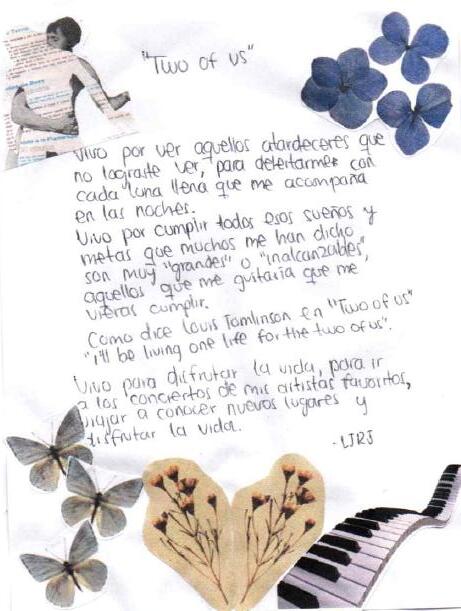 "Two of us"
Vivo por ver aquellos atardeceres que
no lograste ver, para deleitarme con
cada luna llena que me acompaña
en las noches.
Vivo por cumplir todos esos sueños y
metas que muchos me han dicho
son muy "grandes" o "inalcanzables",
aquellos que me gustaría que me
vieras cumplir.
Como dice Louis Tomlinson en "Two of us"
"i'll be living one life for the two of us".
Vivo para disfrutar la vida, para ir
a los conciertos de mis artistas favoritos,
viajar a conocer nuevos lugares y
disfrutar la vida.
-LJRJ